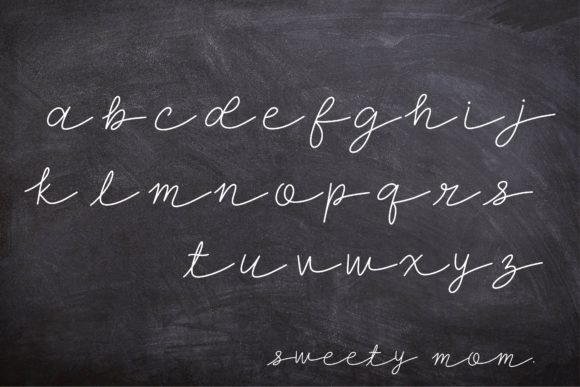 a b c d e f g h i j
k l m n o p q r s
t u v w x y z
sweety mom.